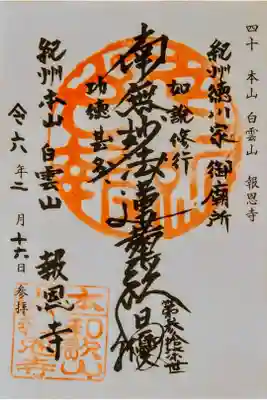 四十 本山 白雲山 報恩寺
紀州徳川家御廟所
如説修行
南無妙法蓮華経
功徳甚多
第参拾
世
紀州本山 白雲山
報恩寺
令六年二月十六日 参拝